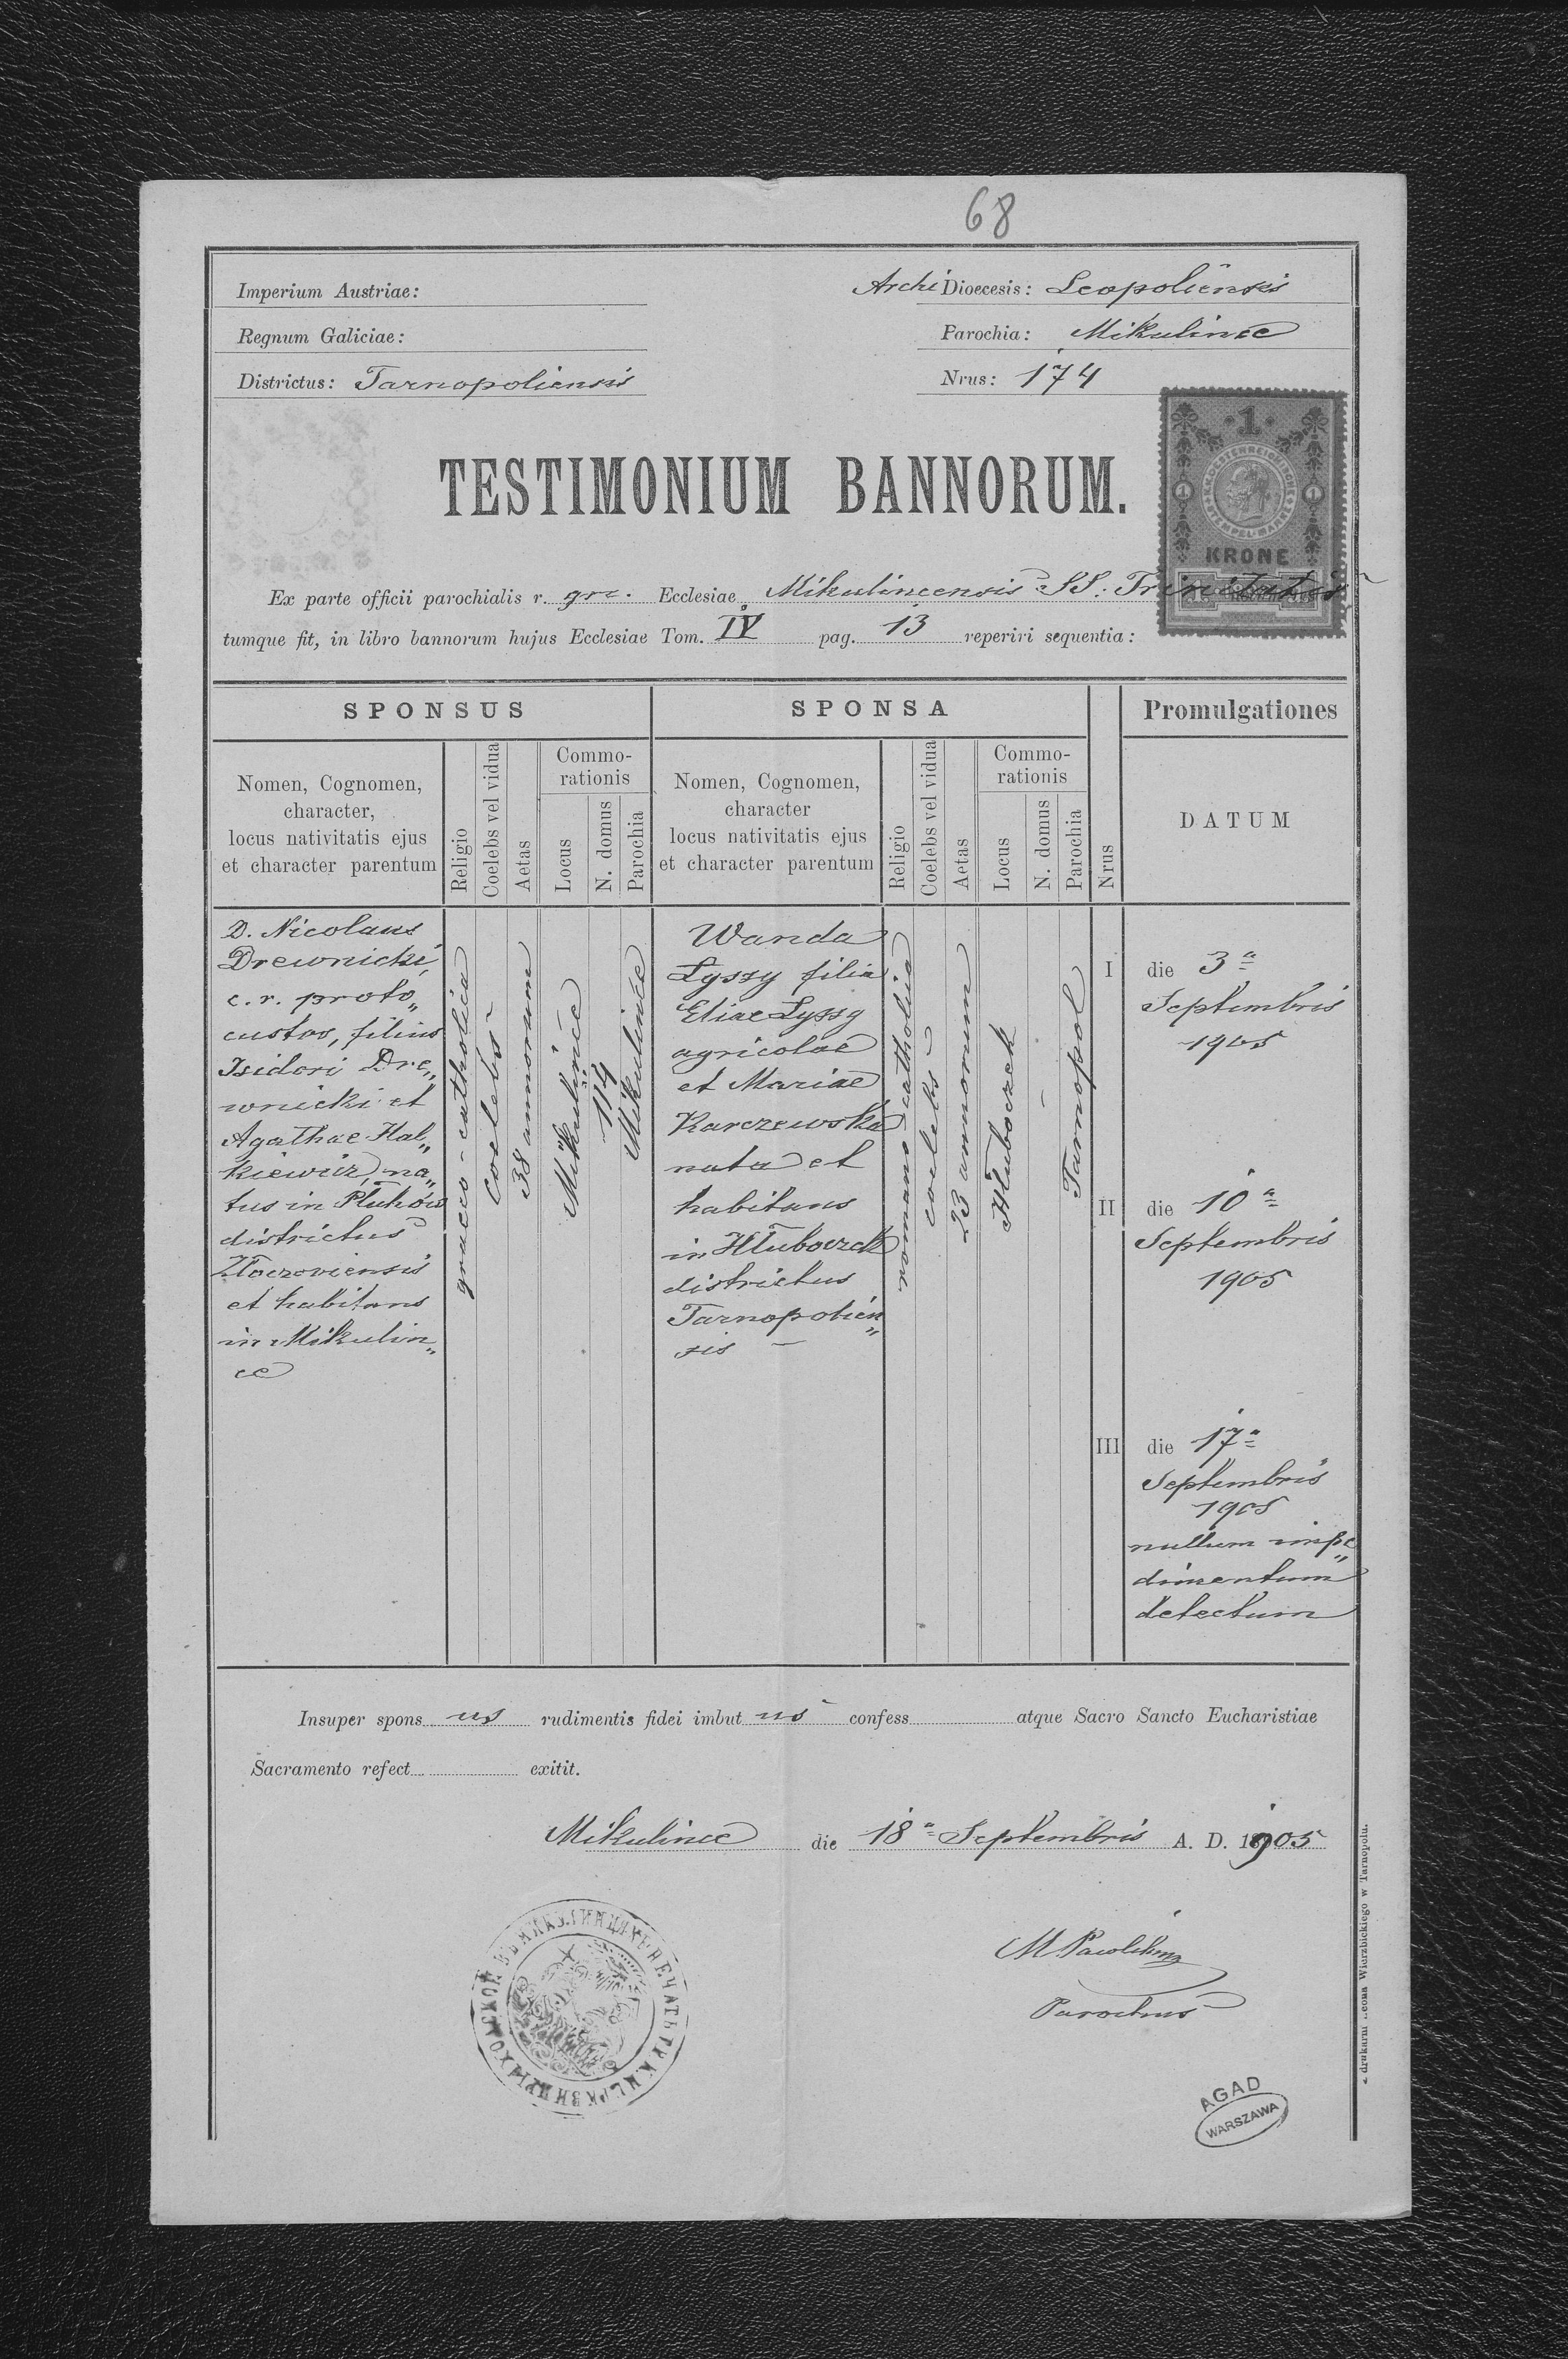 68
Imperium Austriae:
Regnum Galiciae:
Districtus: Tarnopoliensis
Archi Dioecesis: Leopoliensis
Parochia: Mikulince
Nrus: 174
1
KRONE
TESTIMONIUM BANNORUM.
Ex parte officii parochialis r. grc. Ecclesiae Mikulincensis SS. Trinitatis
tumque fit, in libro bannorum hujus Ecclesiae Tom. IV pag. 13 reperiri sequentia:
SPONSUS
Nomen, Cognomen,
character,
locus nativitatis ejus
et character parentum
Religio
Coelebs vel vidua
Aetas
Commo-
rationis
Locus
N. domus
Parochia
SPONSA
Nomen, Cognomen,
character
locus nativitatis ejus
et character parentum
Religio
Coelebs vel vidua
Aetas
Commo-
rationis
Locus
N. domus
Parochia
Nrus
Promulgationes
DATUM
D. Nicolaus
Drewnicki,
c. r. proto„
custos, filius
Isidori Dre„
wnicki et
Agathae Hal„
kiewicz, na„
tus in Płuhów
districtus
Złoczoviensis
et habitans
in Mikulin„
ce
graeco-catholica
coelebs
38 annorum
Mikulince
114
Mikulince
Wanda
Łyssy filia
Eliae Łyssy
agricolae
et Mariae
Karczewska
nata et
habitans
in Hłuboczek
districtus
Tarnopolien„
sis
romano catholica
coelebs
23 annorum
Hłuboczek
-
Tarnopol
I die 3ª
Septembris
1905
II die 10ª
Septembris
1905
III die 17ª
Septembris
1905
nullum impe„
dimentum
detectum
Insuper spons us rudimentis fidei imbut us confess atque Sacro Sancto Eucharistiae
Sacramento refect exitit.
Mikulince die 18ª Septembris A. D. 1905
Parochus
AGAD
WARSZAWA
drukarni Leona Wierzbickiego w Tarnopolu.